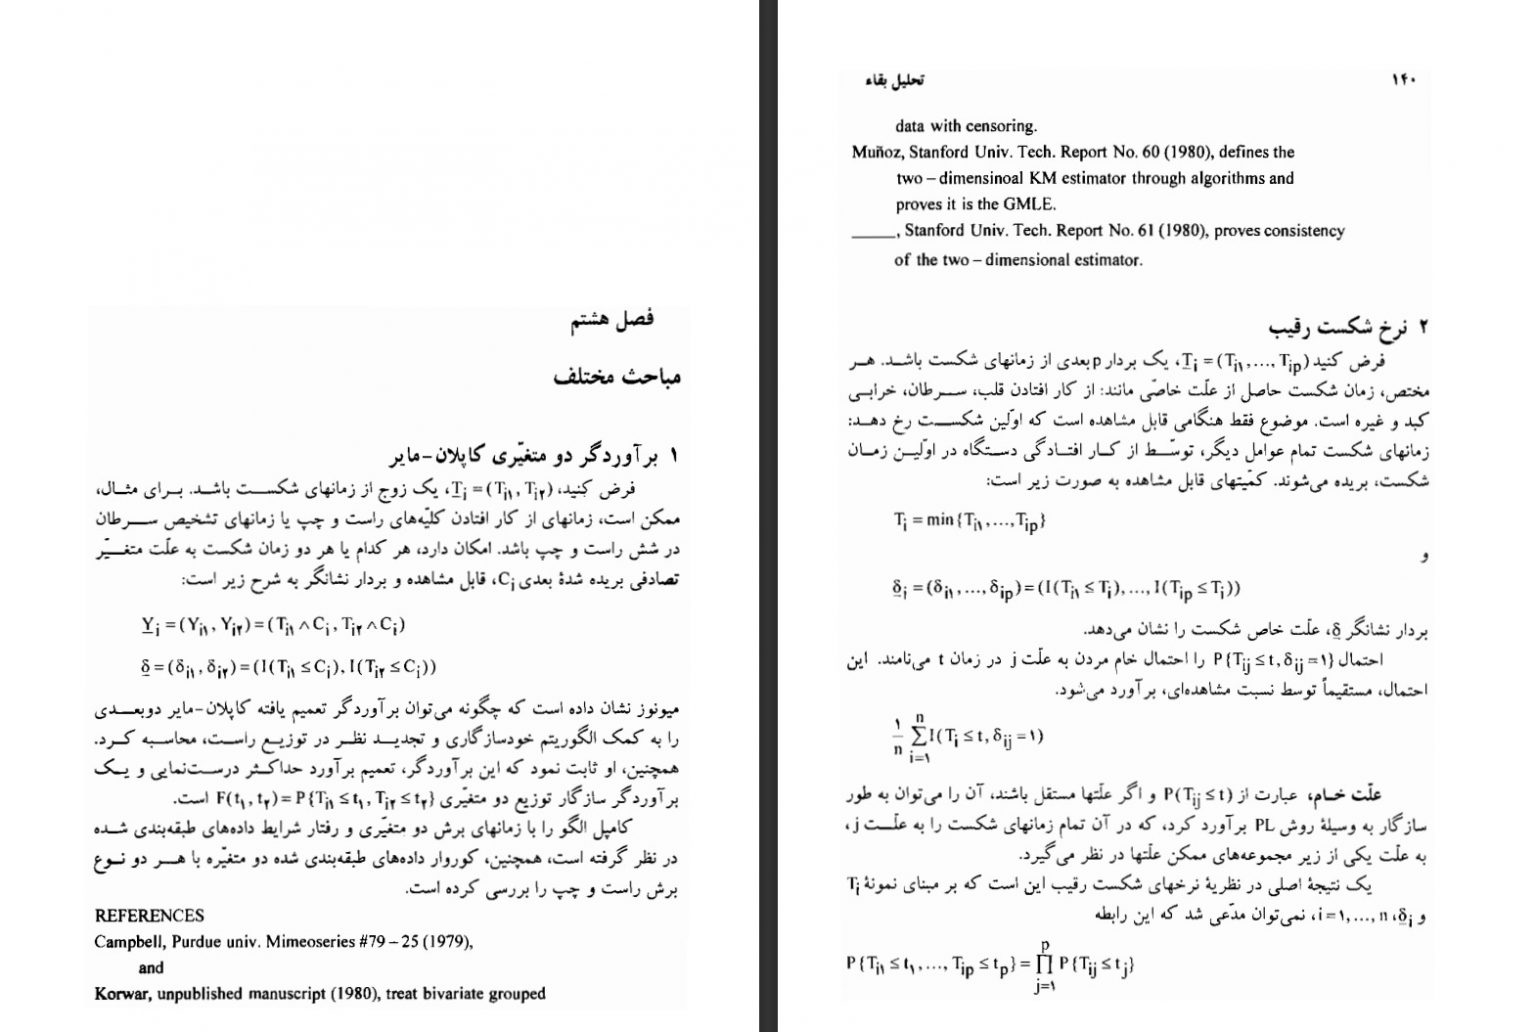 فصل هشتم
مباحث مختلف
۱ برآوردگر دو متغیّری کاپلان-مایر
فرض کنید، T̲ᵢ = (Tᵢ۱, Tᵢ۲)، یک زوج از زمانهای شکست باشد. برای مثال،
ممکن است، زمانهای از کار افتادن کلیّه‌های راست و چپ یا زمانهای تشخیص سرطان
در شش راست و چپ باشد. امکان دارد، هر کدام یا هر دو زمان شکست به علّت متغیّر
تصادفی بریده شدۀ بعدی Cᵢ، قابل مشاهده و بردار نشانگر به شرح زیر است:
Y̲ᵢ = (Yᵢ۱, Yᵢ۲) = (Tᵢ۱ ∧ Cᵢ, Tᵢ۲ ∧ Cᵢ)
δ̲ = (δᵢ۱, δᵢ۲) = (I(Tᵢ۱ ≤ Cᵢ), I(Tᵢ۲ ≤ Cᵢ))
میونوز نشان داده است که چگونه می‌توان برآوردگر تعمیم یافته کاپلان-مایر دوبعدی
را به کمک الگوریتم خودسازگاری و تجدید نظر در توزیع راست، محاسبه کرد.
همچنین، او ثابت نمود که این برآوردگر، تعمیم برآورد حداکثر درست‌نمایی و یک
برآوردگر سازگار توزیع دو متغیّری F(t۱, t۲) = P{Tᵢ۱ ≤ t۱, Tᵢ۲ ≤ t۲} است.
کامپل الگو را با زمانهای برش دو متغیّری و رفتار شرایط داده‌های طبقه‌بندی شده
در نظر گرفته است، همچنین، کوروار داده‌های طبقه‌بندی شده دو متغیّره با هر دو نوع
برش راست و چپ را بررسی کرده است.
REFERENCES
Campbell, Purdue univ. Mimeoseries #79 – 25 (1979),
and
Korwar, unpublished manuscript (1980), treat bivariate grouped
تحلیل بقاء ۱۴۰
data with censoring.
Muñoz, Stanford Univ. Tech. Report No. 60 (1980), defines the
two – dimensinoal KM estimator through algorithms and
proves it is the GMLE.
_____, Stanford Univ. Tech. Report No. 61 (1980), proves consistency
of the two – dimensional estimator.
۲ نرخ شکست رقیب
فرض کنید T̲ᵢ = (Tᵢ۱, ..., Tᵢₚ)، یک بردار p بعدی از زمانهای شکست باشد. هر
مختص، زمان شکست حاصل از علّت خاصّی مانند: از کار افتادن قلب، سرطان، خرابی
کبد و غیره است. موضوع فقط هنگامی قابل مشاهده است که اوّلین شکست رخ دهد:
زمانهای شکست تمام عوامل دیگر، توسّط از کار افتادگی دستگاه در اوّلین زمان
شکست، بریده می‌شوند. کمّیتهای قابل مشاهده به صورت زیر است:
Tᵢ = min{Tᵢ۱, ..., Tᵢₚ}
و
δ̲ᵢ = (δᵢ۱, ..., δᵢₚ) = (I(Tᵢ۱ ≤ Tᵢ), ..., I(Tᵢₚ ≤ Tᵢ))
بردار نشانگر δ̲، علّت خاص شکست را نشان می‌دهد.
احتمال P{Tᵢⱼ ≤ t, δᵢⱼ = ۱} را احتمال خام مردن به علّت j در زمان t می‌نامند. این
احتمال، مستقیماً توسط نسبت مشاهده‌ای، برآورد می‌شود.
۱/n ∑ᵢ₌۱ⁿ I(Tᵢ ≤ t, δᵢⱼ = ۱)
علّت خام، عبارت از P(Tᵢⱼ ≤ t) و اگر علّتها مستقل باشند، آن را می‌توان به طور
سازگار به وسیلۀ روش PL برآورد کرد، که در آن تمام زمانهای شکست را به علّت j،
به علّت یکی از زیر مجموعه‌های ممکن علّتها در نظر می‌گیرد.
یک نتیجۀ اصلی در نظریۀ نرخهای شکست رقیب این است که بر مبنای نمونۀ Tᵢ
و δ̲ᵢ، i = ۱, ..., n، نمی‌توان مدّعی شد که این رابطه
P{Tᵢ۱ ≤ t۱, ..., Tᵢₚ ≤ tₚ} = ∏ⱼ₌۱ᵖ P{Tᵢⱼ ≤ tⱼ}